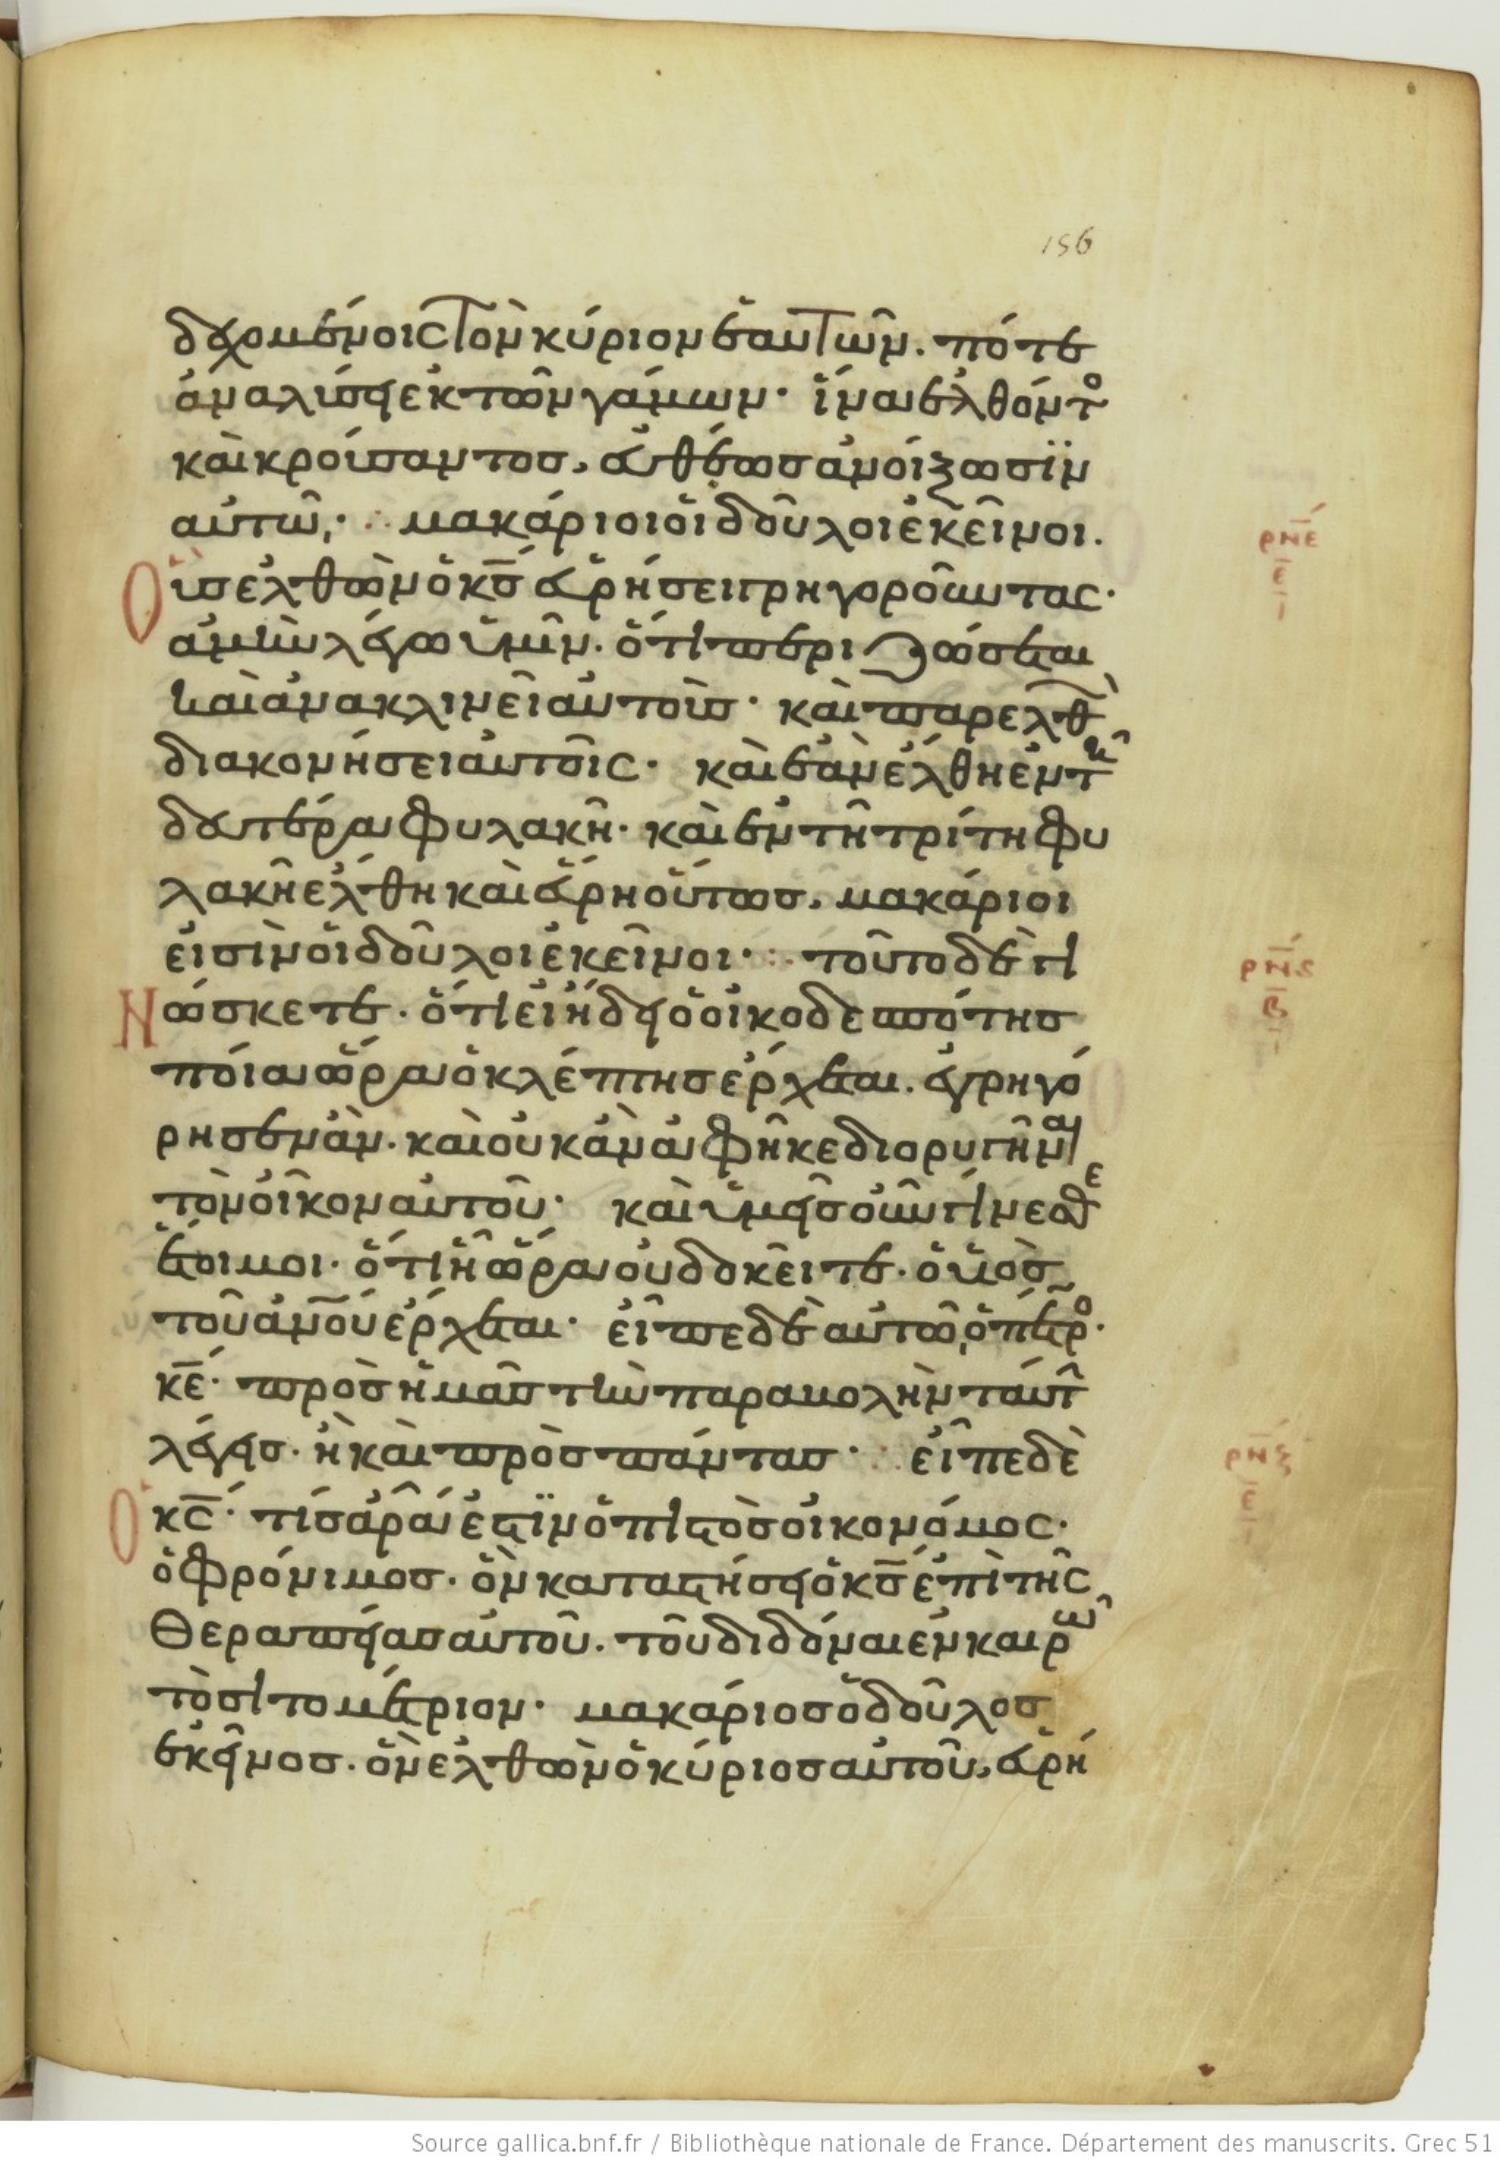 156
δεχομένοις τὸν κύριον ἑαυτῶν. πότε
ἀναλύσει ἐκ τῶν γάμων· ἵνα ἐλθόντο
καὶ κρούσαντοσ, εὐθέωσ ἀνοίξωσϊν
αὐτῶ,· μακάριοι οἱ δοῦλοι ἐκεῖνοι.
Οὓσ ἐλθὼν ὁ κσ̅ εὑρήσει γρηγοροῦντας·
ἀμὴν λέγω ὑμῖν. ὅτι περιζώσεται
καὶ ἀνακλινεῖ αὐτοὺσ· καὶ παρελθ
διακονήσει αὐτοῖς· καὶ ἐὰν ἔλθη ἐν τῆ
δευτέρα φυλακῆ· καὶ ἐν τῆ τρίτη φυ
λακῆ ἔλθη καὶ εὕρη οὕτωσ, μακάριοι
εἰσὶν οἱ δοῦλοι ἐκεῖνοι· τοῦτο δὲ γι
Νώσκετε. ὅτι εἰ ἤδει ὁ οἰκοδεσπότησ
ποία ὥρα ὁ κλέπτησ ἔρχεται. ἐγρηγό
ρησεν ἂν. καὶ οὐκ ἂν ἀφῆκε διορυγῆναι
τὸν οἶκον αὐτοῦ· καὶ ὑμεῖσ οὖν γίνεσθε
ἕτοιμοι. ὅτι ἧ ὥρα οὐ δοκεῖτε. ὁ υἱὸσ
τοῦ ἀνου̅ ἔρχεται· εἶπε δὲ αὐτῶ, ὁ πέτρο·
κε̅· πρὸσ ἡμᾶσ τὴν παραβολὴν ταύτ
λέγεισ. ἢ καὶ πρὸσ πάντασ· εἶπε δὲ
Ὁ κς̅· τίσ ἄρα ἐστϊν ὁ πιστὸσ οἰκονόμος·
ὁ φρόνιμοσ. ὃν καταστήσει ὁ κσ̅ ἐπὶ τῆς
θεραπείασ αὐτοῦ. τοῦ διδόναι ἐν καιρῶ
τὸ σιτομέτριον· μακάριοσ ὁ δοῦλοσ
ἐκεῖνοσ. ὃν ἐλθὼν ὁ κύριοσ αὐτοῦ, εὑρή
ρνε
ε
ρνς
β
ρνζ
ε
Source gallica.bnf.fr / Bibliothèque nationale de France. Département des manuscrits. Grec 51